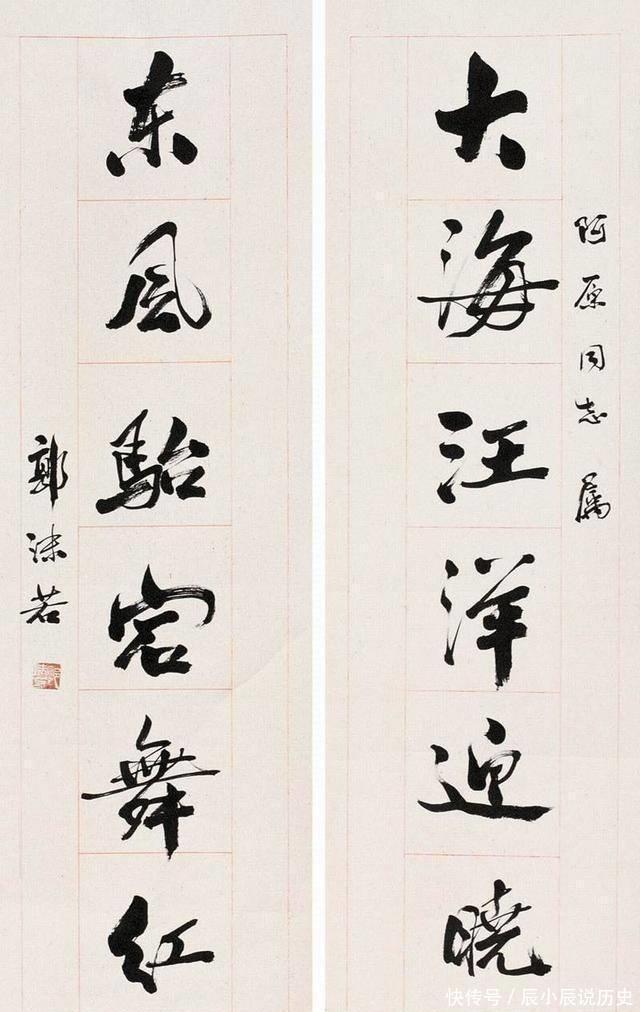 阿原同志属
大海汪洋迎晓
东风駘宕舞红
郭沫若
快传号 / 辰小辰说历史